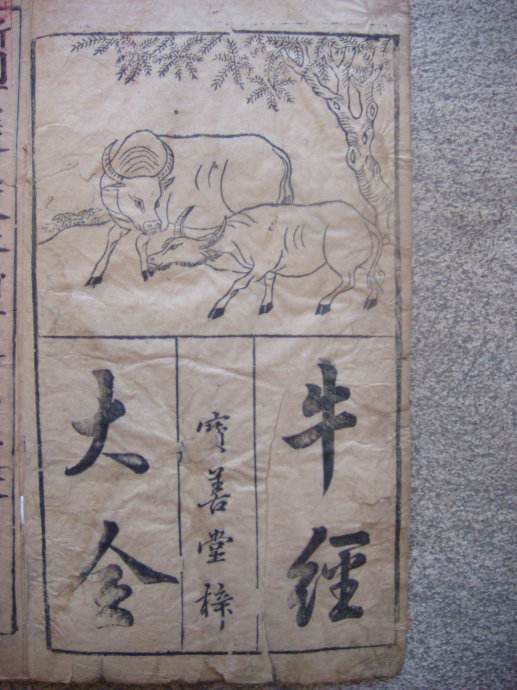 牛經
寶善堂梓
大全